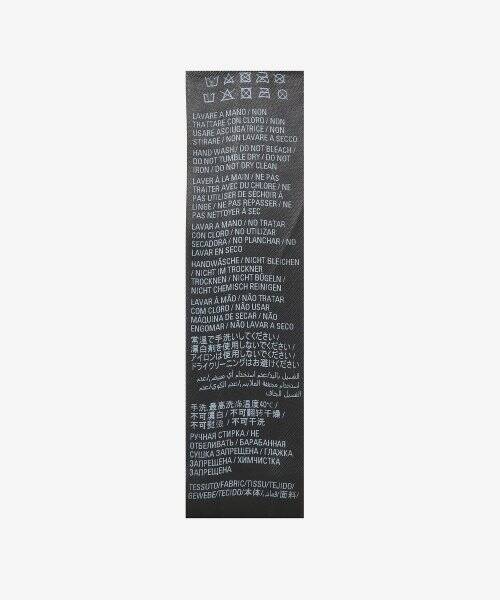 LAVARE A MANO / NON
TRATTARE CON CLORO / NON
USARE ASCIUGATRICE / NON
STIRARE / NON LAVARE A SECCO
HAND WASH / DO NOT BLEACH /
DO NOT TUMBLE DRY / DO NOT
IRON / DO NOT DRY CLEAN
LAVER À LA MAIN / NE PAS
TRAITER AVEC DU CHLORE / NE
PAS UTILISER DE SÉCHOIR À
LINGE / NE PAS REPASSER / NE
PAS NETTOYER À SEC
LAVAR A MANO / NO TRATAR
CON CLORO / NO UTILIZAR
SECADORA / NO PLANCHAR / NO
LAVAR EN SECO
HANDWÄSCHE / NICHT BLEICHEN
/ NICHT IM TROCKNER
TROCKNEN / NICHT BÜGELN /
NICHT CHEMISCH REINIGEN
LAVAR À MÃO / NÃO TRATAR
COM CLORO / NÃO USAR
MÁQUINA DE SECAR / NÃO
ENGOMAR / NÃO LAVAR A SECO
常温で手洗いしてください/
漂白剤を使用しないでください/
アイロンは使用しないでください/
ドライクリーニングはお避けください
الغسيل باليد/عدم استخدام أي مبيض/عدم
استخدام مجففة الملابس/عدم الكوي/عدم
الغسيل الجاف
手洗, 最高洗涤温度40℃/
不可漂白/不可翻转干燥/
不可熨烫/不可干洗
РУЧНАЯ СТИРКА / НЕ
ОТБЕЛИВАТЬ / БАРАБАННАЯ
СУШКА ЗАПРЕЩЕНА / ГЛАЖКА
ЗАПРЕЩЕНА / ХИМЧИСТКА
ЗАПРЕЩЕНА
TESSUTO/FABRIC/TISSU/TEJIDO/
GEWEBE/TECIDO/本体/قماش/面料/